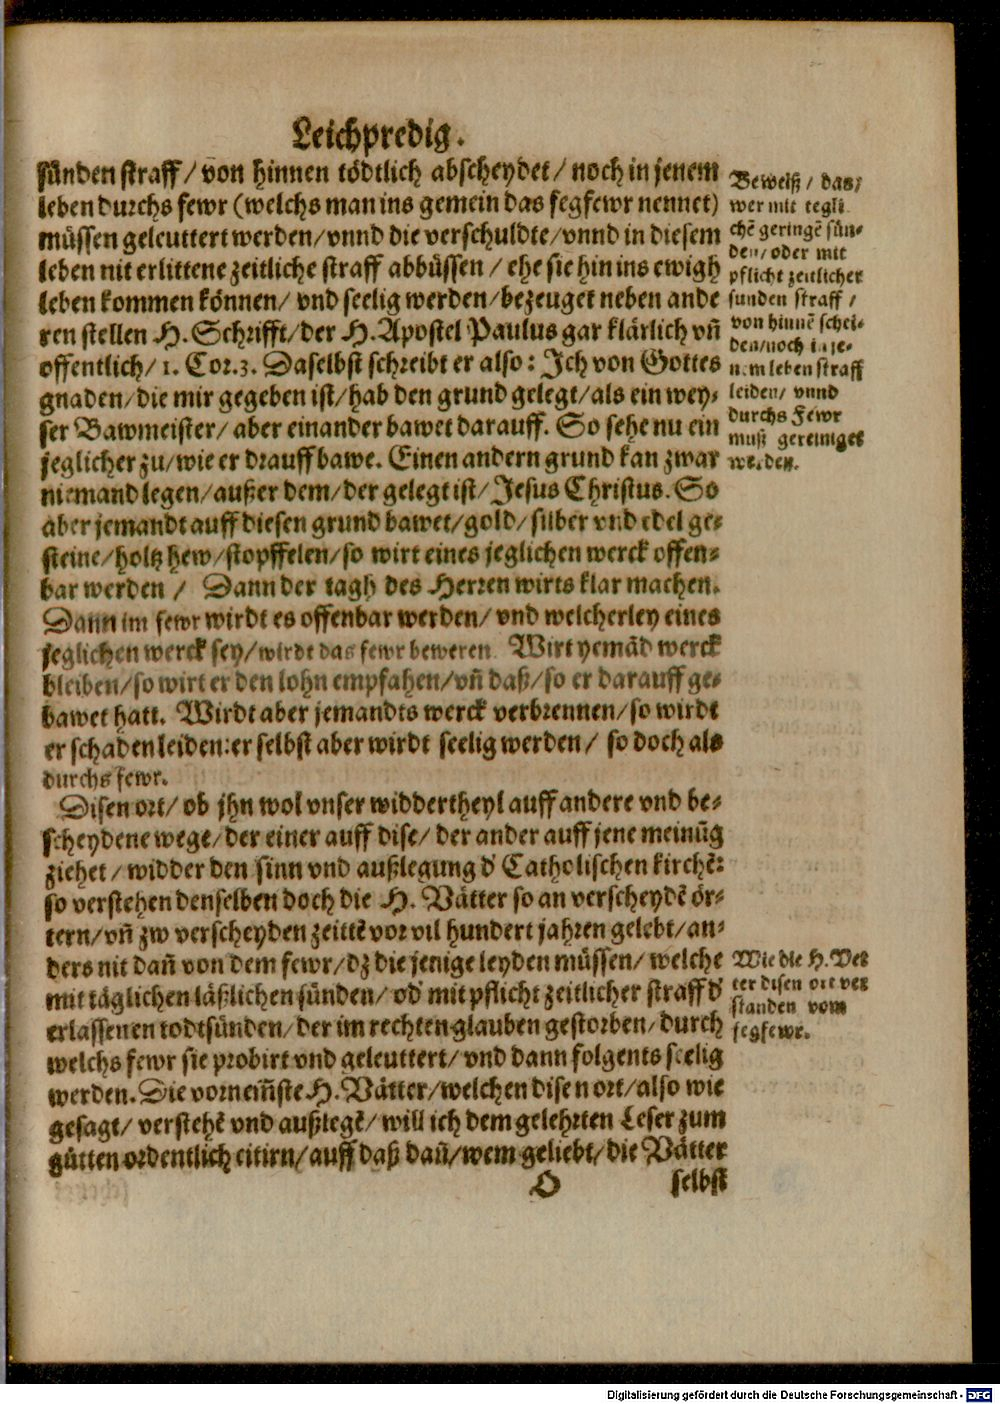 Leichpredig.
sünden straff / von hinnen tödtlich abscheydet / noch in jenem
leben durchs fewr (welchs man ins gemein das fegfewr nennet)
müssen geleuttert werden / vnnd die verschuldte / vnnd in diesem
leben nit erlittene zeitliche straff abbüssen / ehe sie hin ins ewigh
leben kommen können / vnd seelig werden / bezeuget neben ande
ren stellen H. Schrifft / der H. Apostel Paulus gar klärlich vñ
offentlich / 1. Cor. 3. Daselbst schreibt er also: Ich von Gottes
gnaden / die mir gegeben ist / hab den grund gelegt / als ein wey-
ser Bawmeister / aber einander bawet darauff. So sehe nu ein
jeglicher zu / wie er drauff bawe. Einen andern grund kan zwar
niemand legen / außer dem / der gelegt ist / Jesus Christus. So
aber jemandt auff diesen grund bawet / gold / silber vnd edel ge-
steine / holtz hew / stopffelen / so wirt eines jeglichen werck offen-
bar werden / Dann der tagh des Herren wirts klar machen.
Dann im fewr wirdt es offenbar werden / vnd welcherley eines
jeglichen werck sey / wirdt das fewr beweren. Wirt yemãd werck
bleiben / so wirt er den lohn empfahen / vñ daß / so er darauff ge-
bawet hatt. Wirdt aber jemandts werck verbrennen / so wirdt
er schaden leiden: er selbst aber wirdt seelig werden / so doch als
durchs fewr.
Disen ort / ob jhn wol vnser widdertheyl auff andere vnd be-
scheydene wege / der einer auff dise / der ander auff jene meinũg
ziehet / widder den sinn vnd außlegung d' Catholischen kirchẽ:
so verstehen denselben doch die H. Vätter so an verscheydẽ ör-
tern / vñ zw verscheyden zeittẽ vor vil hundert jahren gelebt / an-
ders nit dañ von dem fewr / dz die jenige leyden müssen / welche
mit täglichen läßlichen sünden / od' mit pflicht zeitlicher straff d'
erlassenen todtsünden / der im rechten glauben gestorben / durch
welchs fewr sie probirt vnd geleuttert / vnd dann folgents seelig
werden. Die vornem̃ste H. Vätter / welchen disen ort / also wie
gesagt / verstehẽ vnd außlegẽ / will ich dem gelehrten Leser zum
gütten ordentlich citirn / auff daß dañ / wem geliebt / die Vätter
O selbst
Beweiß / das /
wer mit tegli
chẽ geringẽ sün-
den / oder mit
pflicht zeitlicher
sunden straff /
von hinnẽ schei-
den / noch in je-
nem leben straff
leiden / vnnd
durchs Fewr
muß gereiniget
werden.
Wie die H. Vet
ter disen ort ver
standen vom
fegfewr.
Digitalisierung gefördert durch die Deutsche Forschungsgemeinschaft - DFG